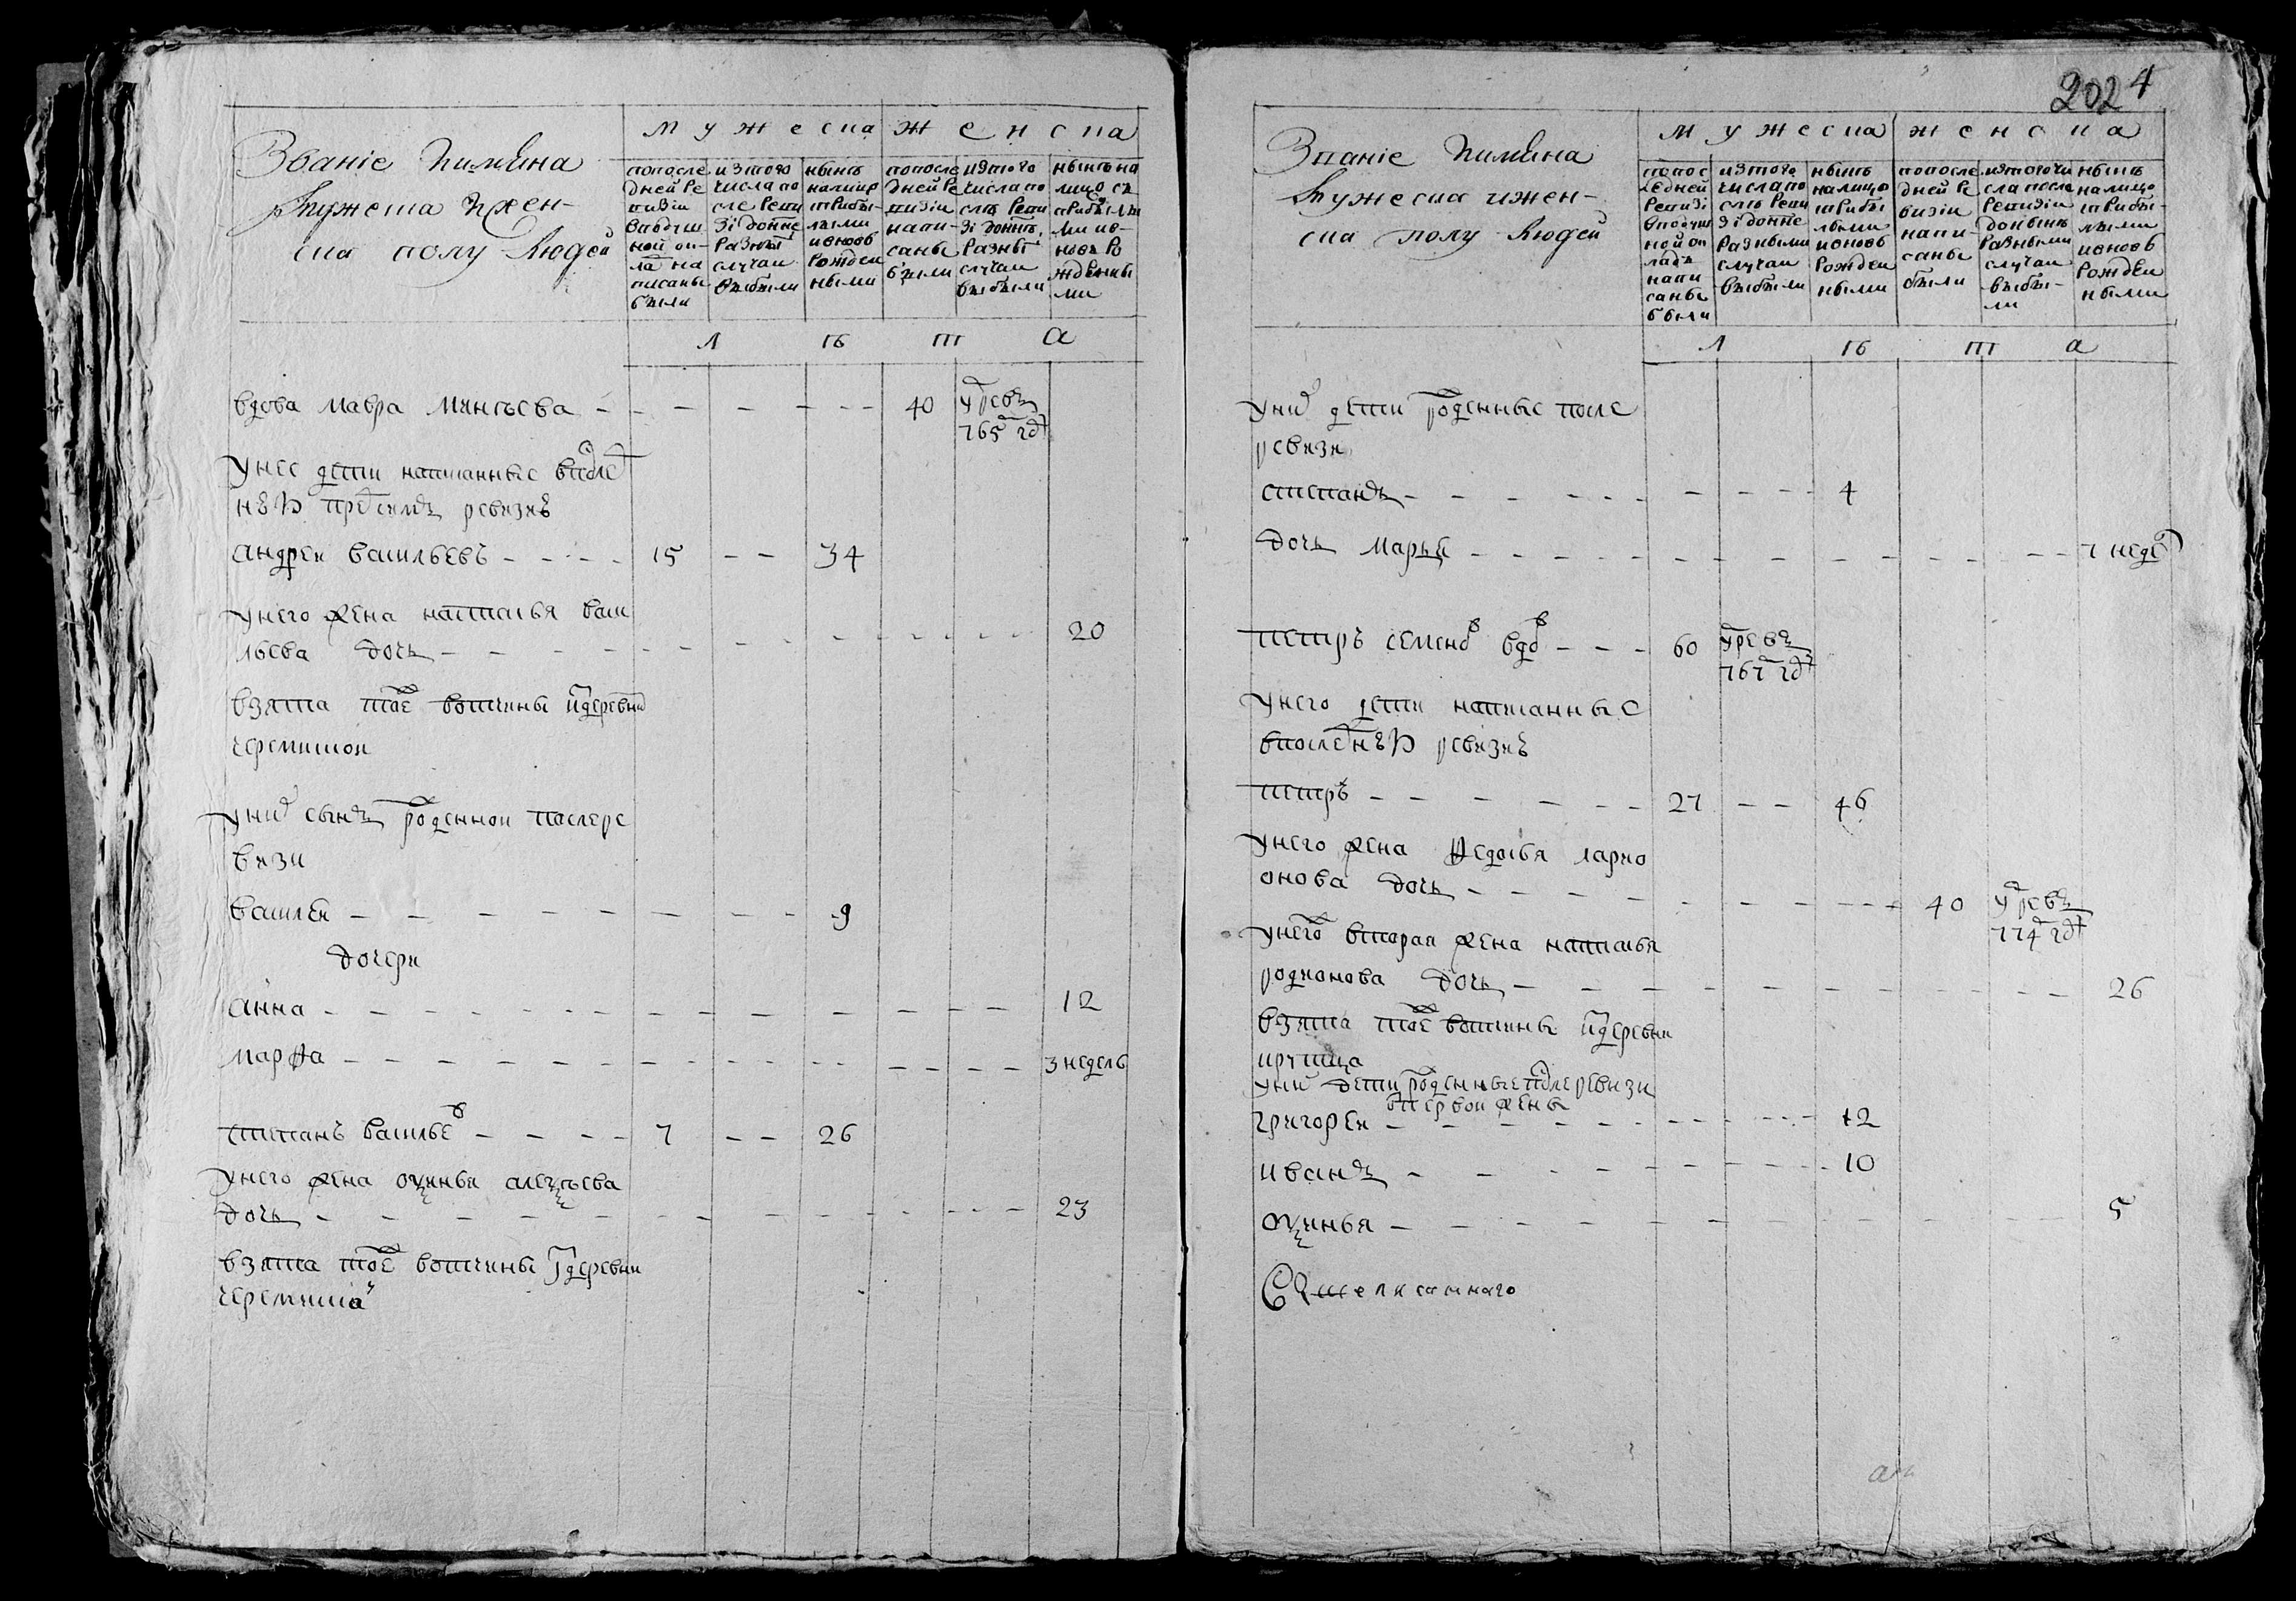 2024
Званіе и имяна
мужеска и жен-
ска полу людей
мужеска женска
попосле
дней ре
визіи
вподуш
ной ок-
ладъ на
писаны
были
изтого
числа по
сле реви
зіи донне
разны
случаи
выбыли
нынѣ
налице
спрыбы-
лыми
ивновь
рожден
ными
попосле
дней ре
визіи
напи-
саны
были
изтого
числа по
слѣ реви
зіи доннѣ
разны
случаи
выбыли
нынѣ на
лицо съ
прибылы
ми ив-
новь ро
жденны
ми
лѣта
вдова мавра минѣева - - - - - 40 умре въ
765 год
унее дети написанные впосле
нѣй пред симъ ревизиѣ
андреи васильевъ - - - - 15 - - 34
унего жена наталья васи
льева дочь - - - - - - - 20
взята тоеж вотчины издеревни
черемишки
уних сынъ рожденнои послере
визи
василеи - - - - - - - 9
дочери
анна - - - - - - - - - 12
марфа - - - - - - - - - 3 недель
степанъ васильев - - - - 7 - - 26
унего жена оксинья алексѣева
дочь - - - - - - - - - 23
взята тоеж вотчины издеревни
черемиша
Званіе и имяна
мужеска ижен-
ска полу людей
мужеска женска
попос
ледней
ревизі
вподуш
ной ок
ладъ
напи
саны
были
изтого
числа по
слѣ реви
зіи донне
разными
случаи
выбыли
нынѣ
налицо
сприбы
лыми
ивновь
рожден
ными
попосле
дней ре
визіи
напи-
саны
были
изтого чи
сла после
ревизіи
донынѣ
разными
случаи
выбы-
ли
нынѣ
налицо
сприбы-
лыми
ивновь
рожден
ными
лѣта
уних дети рожденные после
ревизи
степанъ - - - - - - - - 4
дочь марья - - - - - - - - 7 недел
петръ семенов вдов - - - 60 умре въ
767 год
унего дети написанные
впоследнѣй ревизиѣ
петръ - - - - - - 27 - - 46
унего жена федосья ларио
онова дочь - - - - - - - - 40 умре въ
774 год
унего вторая жена наталья
родионова дочь - - - - - - - - 26
взята тоеж вотчины издеревни
уних дети рожденные после ревизи
от первои жены
григореи - - - - - - - - 12
иванъ - - - - - - - - 10
оксинья - - - - - - - - 5